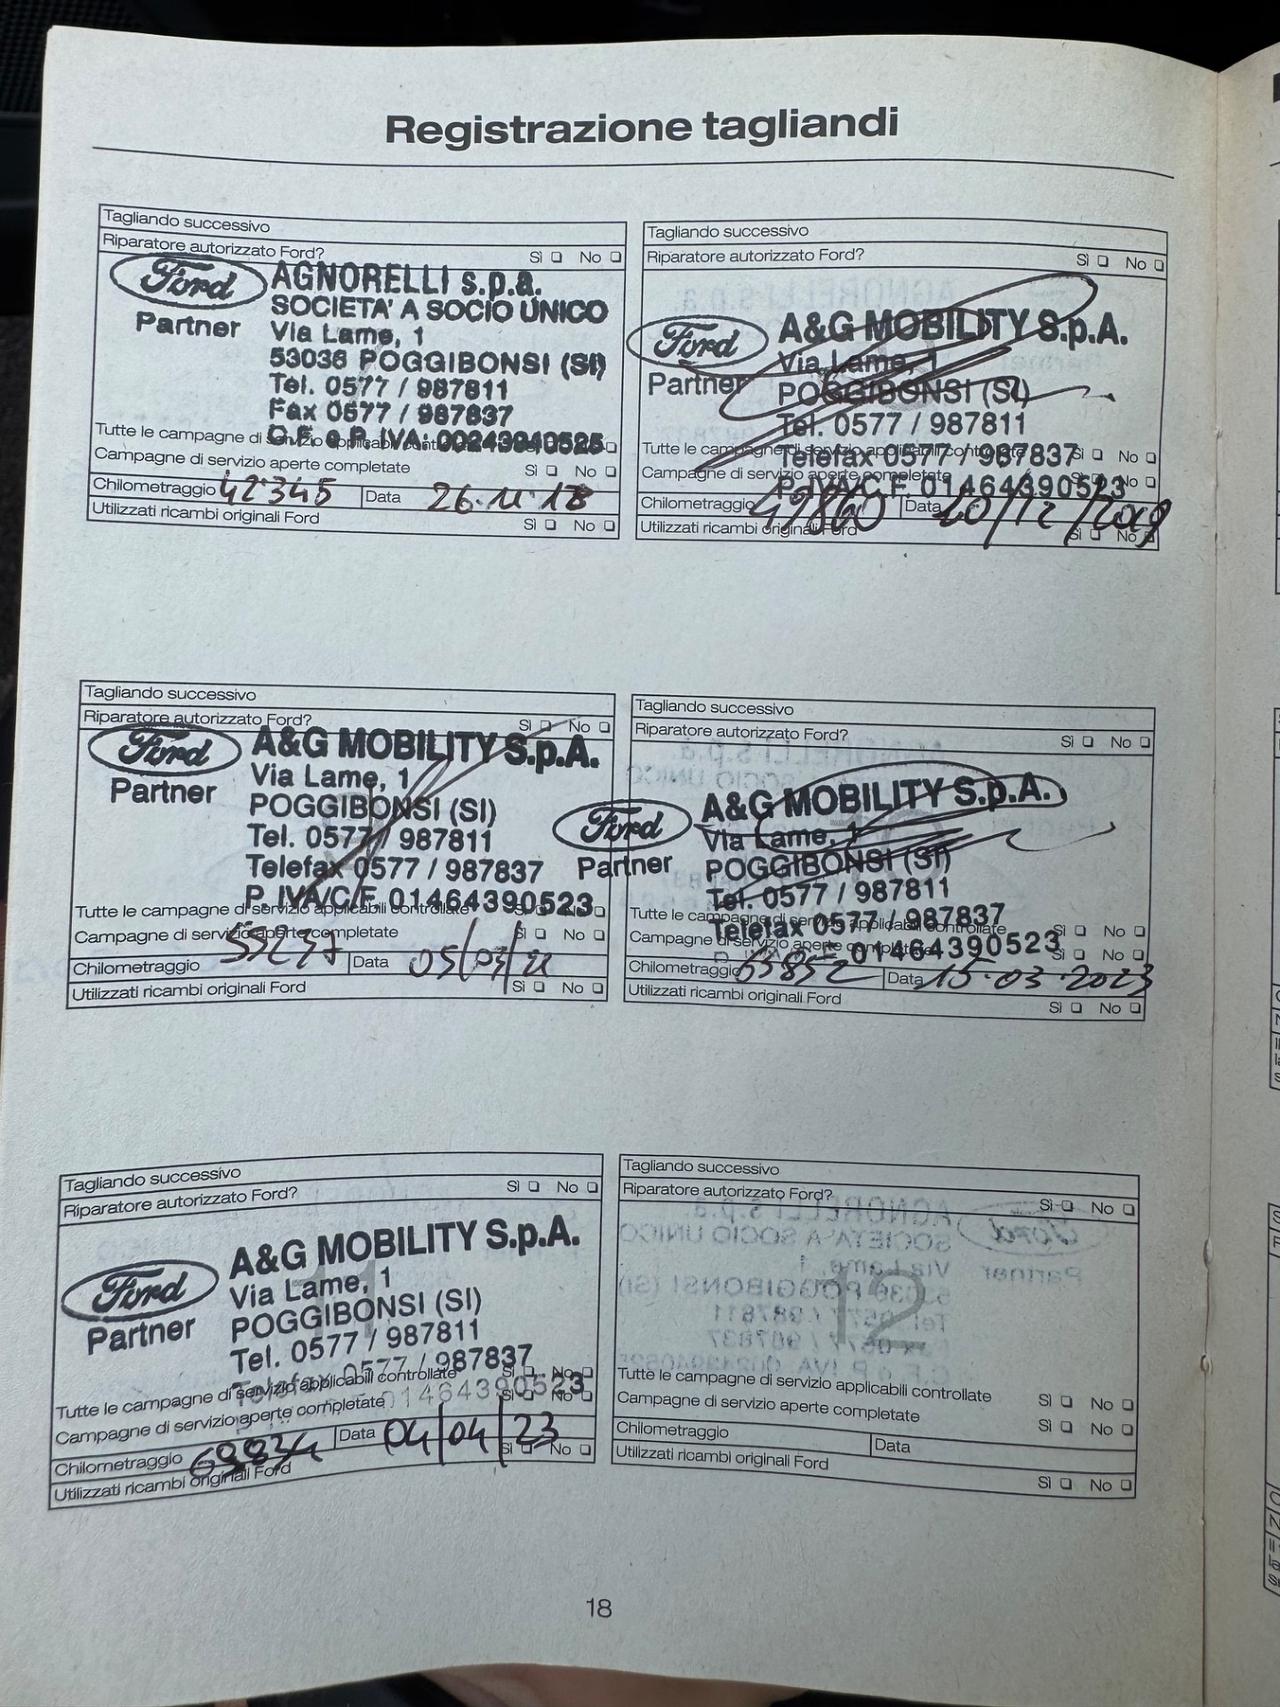 Registrazione tagliandi
Tagliando successivo
Riparatore autorizzato Ford?
Sì ❑ No ❑
Ford
Partner
AGNORELLI s.p.a.
SOCIETA' A SOCIO UNICO
Via Lame, 1
53036 POGGIBONSI (SI)
Tel. 0577 / 987811
Fax 0577 / 987837
C.F. e P. IVA: 00243940525
Tutte le campagne di servizio applicabili
Campagne di servizio aperte completate
Sì ❑ No ❑
Chilometraggio 42345 Data 26.11.18
Utilizzati ricambi originali Ford
Sì ❑ No ❑
Tagliando successivo
Riparatore autorizzato Ford?
Sì ❑ No ❑
Ford
Partner
A&G MOBILITY S.p.A.
Via Lame, 1
POGGIBONSI (SI)
Tel. 0577 / 987811
Telefax 0577 / 987837
P. IVA/C.F. 01464390523
Tutte le campagne di servizio applicabili controllate
Sì ❑ No ❑
Campagne di servizio aperte completate
No ❑
Chilometraggio 49860 Data 20/12/2019
Utilizzati ricambi originali Ford
Sì ❑ No ❑
Tagliando successivo
Riparatore autorizzato Ford?
Sì ❑ No ❑
Ford
Partner
A&G MOBILITY S.p.A.
Via Lame, 1
POGGIBONSI (SI)
Tel. 0577 / 987811
Telefax 0577 / 987837
P. IVA/C.F. 01464390523
Tutte le campagne di servizio applicabili controllate
Campagne di servizio aperte completate
Sì ❑ No ❑
Chilometraggio Data 05/03/22
Utilizzati ricambi originali Ford
Sì ❑ No ❑
Tagliando successivo
Riparatore autorizzato Ford?
Sì ❑ No ❑
Ford
Partner
A&G MOBILITY S.p.A.
Via Lame, 1
POGGIBONSI (SI)
Tel. 0577 / 987811
Telefax 0577 / 987837
01464390523
Tutte le campagne di servizio applicabili controllate
Sì ❑ No ❑
Campagne di servizio aperte
Sì ❑ No ❑
Chilometraggio 63852 Data 15.03.2023
Utilizzati ricambi originali Ford
Sì ❑ No ❑
Tagliando successivo
Riparatore autorizzato Ford?
Sì ❑ No ❑
Ford
Partner
A&G MOBILITY S.p.A.
Via Lame, 1
POGGIBONSI (SI)
Tel. 0577 / 987811
Telefax 0577 / 987837
01464390523
11
Tutte le campagne di servizio applicabili controllate
Sì ❑ No ❑
Campagne di servizio aperte completate
Sì ❑ No ❑
Chilometraggio Data 04/04/23
Utilizzati ricambi originali Ford
Sì ❑ No ❑
Tagliando successivo
Riparatore autorizzato Ford?
Sì ❑ No ❑
12
Tutte le campagne di servizio applicabili controllate
Sì ❑ No ❑
Campagne di servizio aperte completate
Sì ❑ No ❑
Chilometraggio
Data
Utilizzati ricambi originali Ford
Sì ❑ No ❑
18